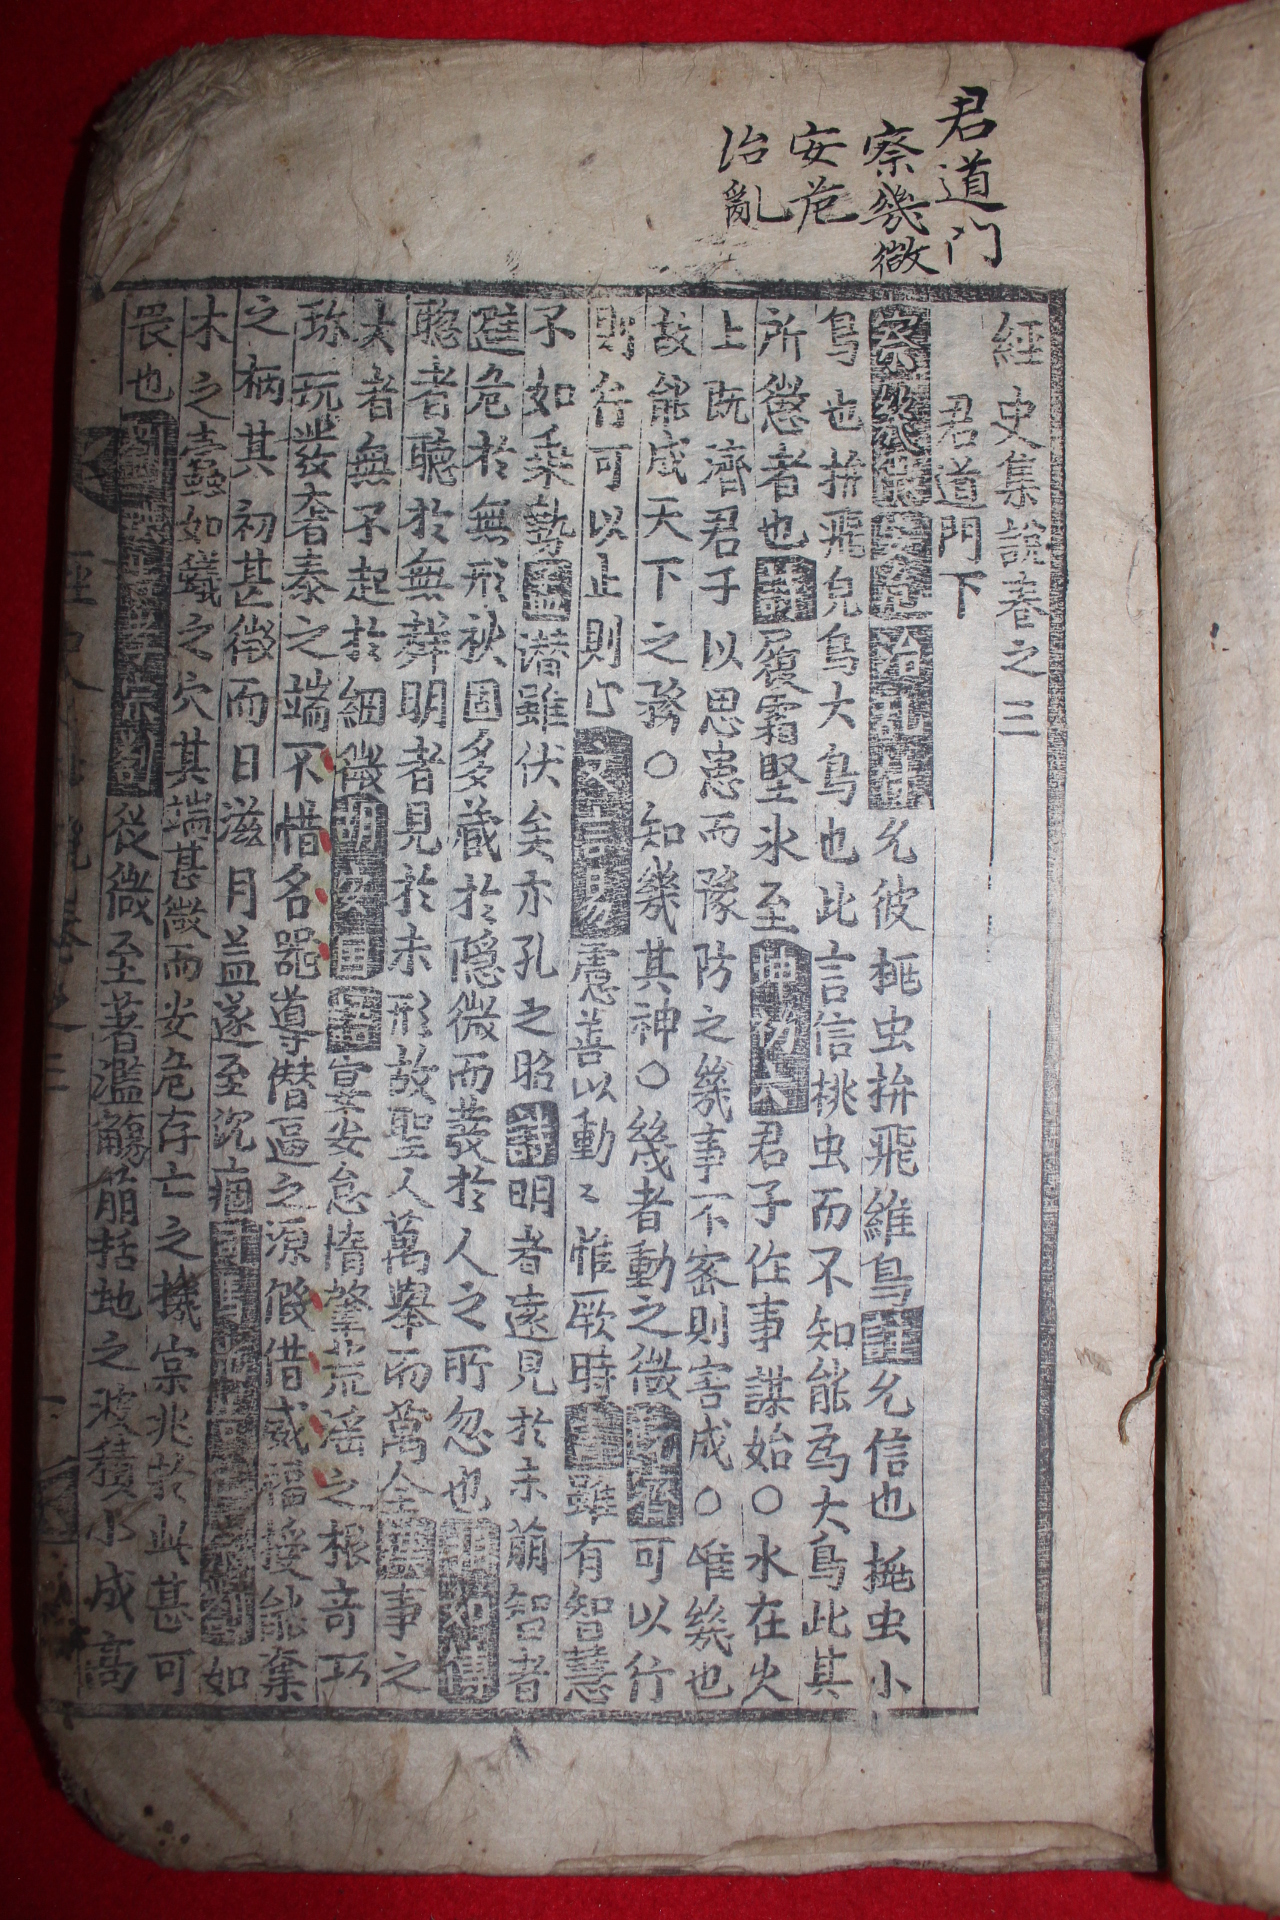 君道門
察幾微
安危
治亂
經史集說卷之三
君道門下
察幾微 安危 治亂 詩 允彼桃虫拚飛維鳥 註 允信也桃虫小
鳥也拚飛皃鳥大鳥也此言信桃虫而不知能爲大鳥此其
所懲者也 坤 履霜堅氷至 坤初六 君子作事謀始○水在火
上旣濟君子以思患而豫防之幾事不密則害成○唯幾也
故能成天下之務○知幾其神○幾者動之微 可以行
則行可以止則止 文言易 慮善以動〻惟厥時 書 雖有智慧
不如乗勢 孟 潜雖伏矣亦孔之昭 詩 明者遠見於未萠智者
避危於無形禍固多藏於隠微而發於人之所忽也
聡者聽於無聲明者見於未形故聖人萬擧而萬全 漢 事之
大者無不起於細微 胡安國 宴安怠惰肇荒滛之根竒巧
珎玩發奢泰之端不惜名器導僣逼之源假借威福授能棄
之柄其初甚微而日滋月益遂至沉痼 如
木之蠧如蟻之穴其端甚微而安危存亡之機寔兆於此甚可
畏也 從微至著濫觴萠括地之波積小成高